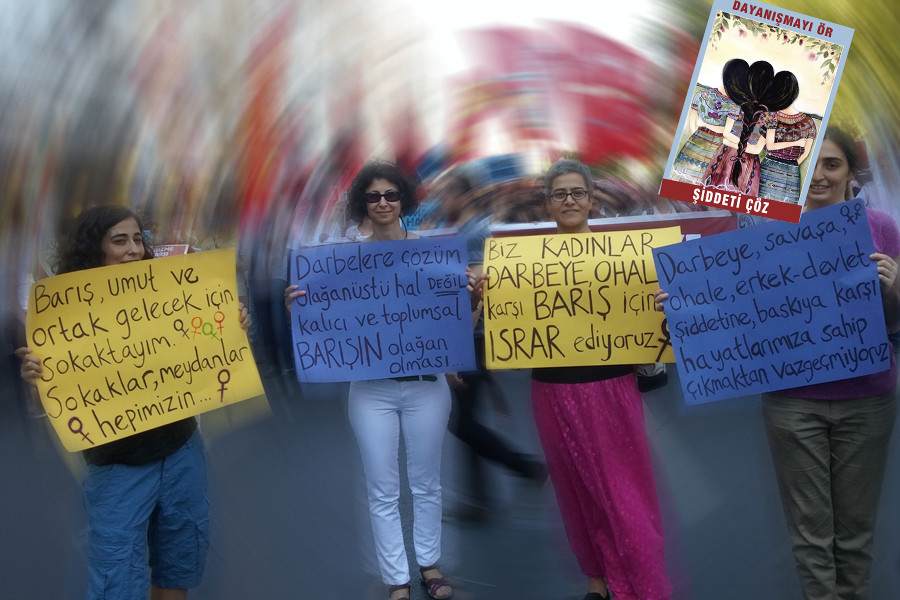 DAYANIŞMAYI ÖR
ŞİDDETİ ÇÖZ
Barış, umut ve
ortak gelecek için
sokaktayım.
Sokaklar, meydanlar
hepimizin...
Darbelere çözüm
olağanüstü hal DEĞİL
kalıcı ve toplumsal
BARIŞIN olağan
olması...
BİZ KADINLAR
DARBEYE, OHAL
karşı BARIŞ için
ISRAR ediyoruz
Darbeye, savaşa,
ohale, erkek-devlet
şiddetine, baskıya karşı
hayatlarımıza sahip
çıkmaktan vazgeçmiyoruz